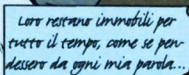 Loro restano immobili per
tutto il tempo, come se pen-
dessero da ogni mia parola...